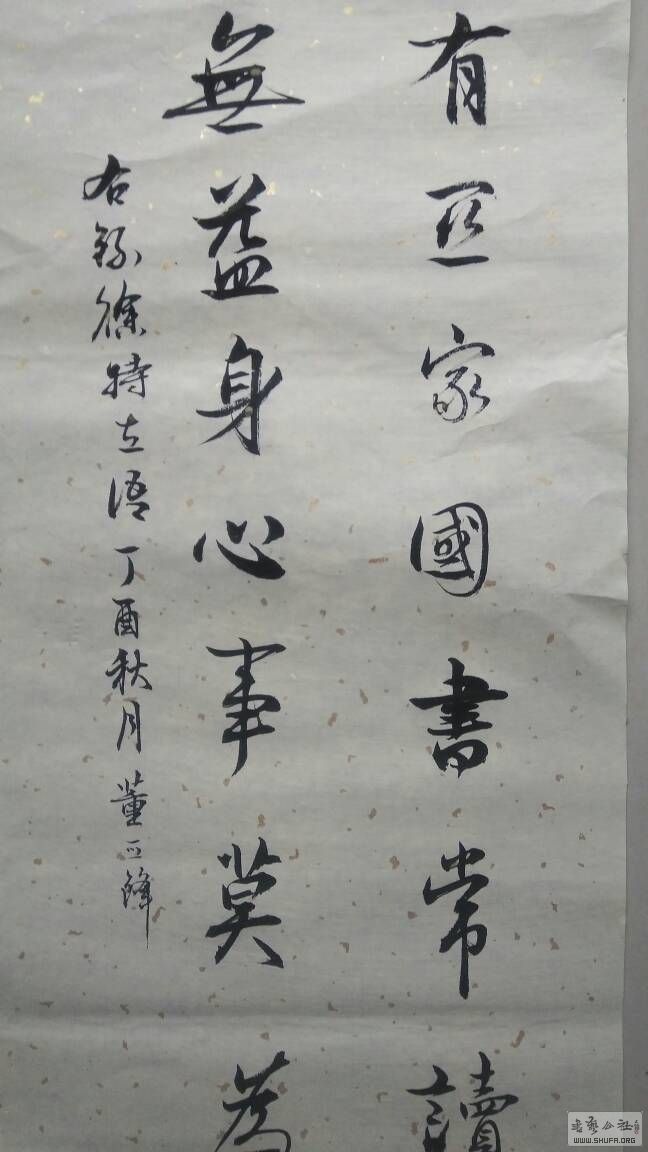 有正家國書常讀
無益身心事莫為
右錄徐特立語丁酉秋月董正鋒
書藝公社
WWW.SHUFA.ORG